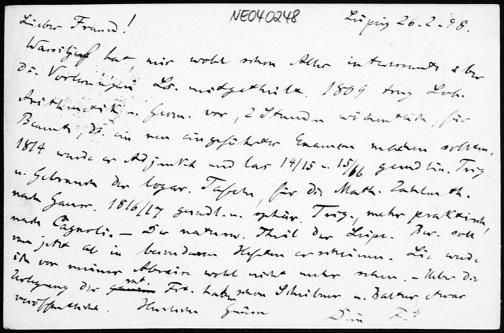 NE040248
Lieber Freund! Leipzig 26.2.98.
hat mir wohl schon Alles interessante über
die Vorlesungen Lob. mitgetheilt. 1809 trug Lob.
Arithmetik u. Geom. vor, 2 Stunden wöchentlich, für
Beamte, die ein neu eingeführtes Examen machen sollten.
1814 wurde er Adjunkt und las 14/15 u. 15/16 geradlin. Trig.
u. Gebrauch der logar. Tafeln, für die Math. Zahlenth.
nach Gauss. 1816/17 geradl. u. sphär. Trig., mehr praktisch,
nach Cagnoli. — Der naturw. Theil der Leipz. Ber. soll
von jetzt ab in besonderen Heften erscheinen. Lie werde
ich vor meiner Abreise wohl nicht mehr sehen. — Ueber die
Zerlegung der Fkt. haben schon Scheibner u. Baltzer etwas
veröffentlicht. Herzliche Grüsse Dein